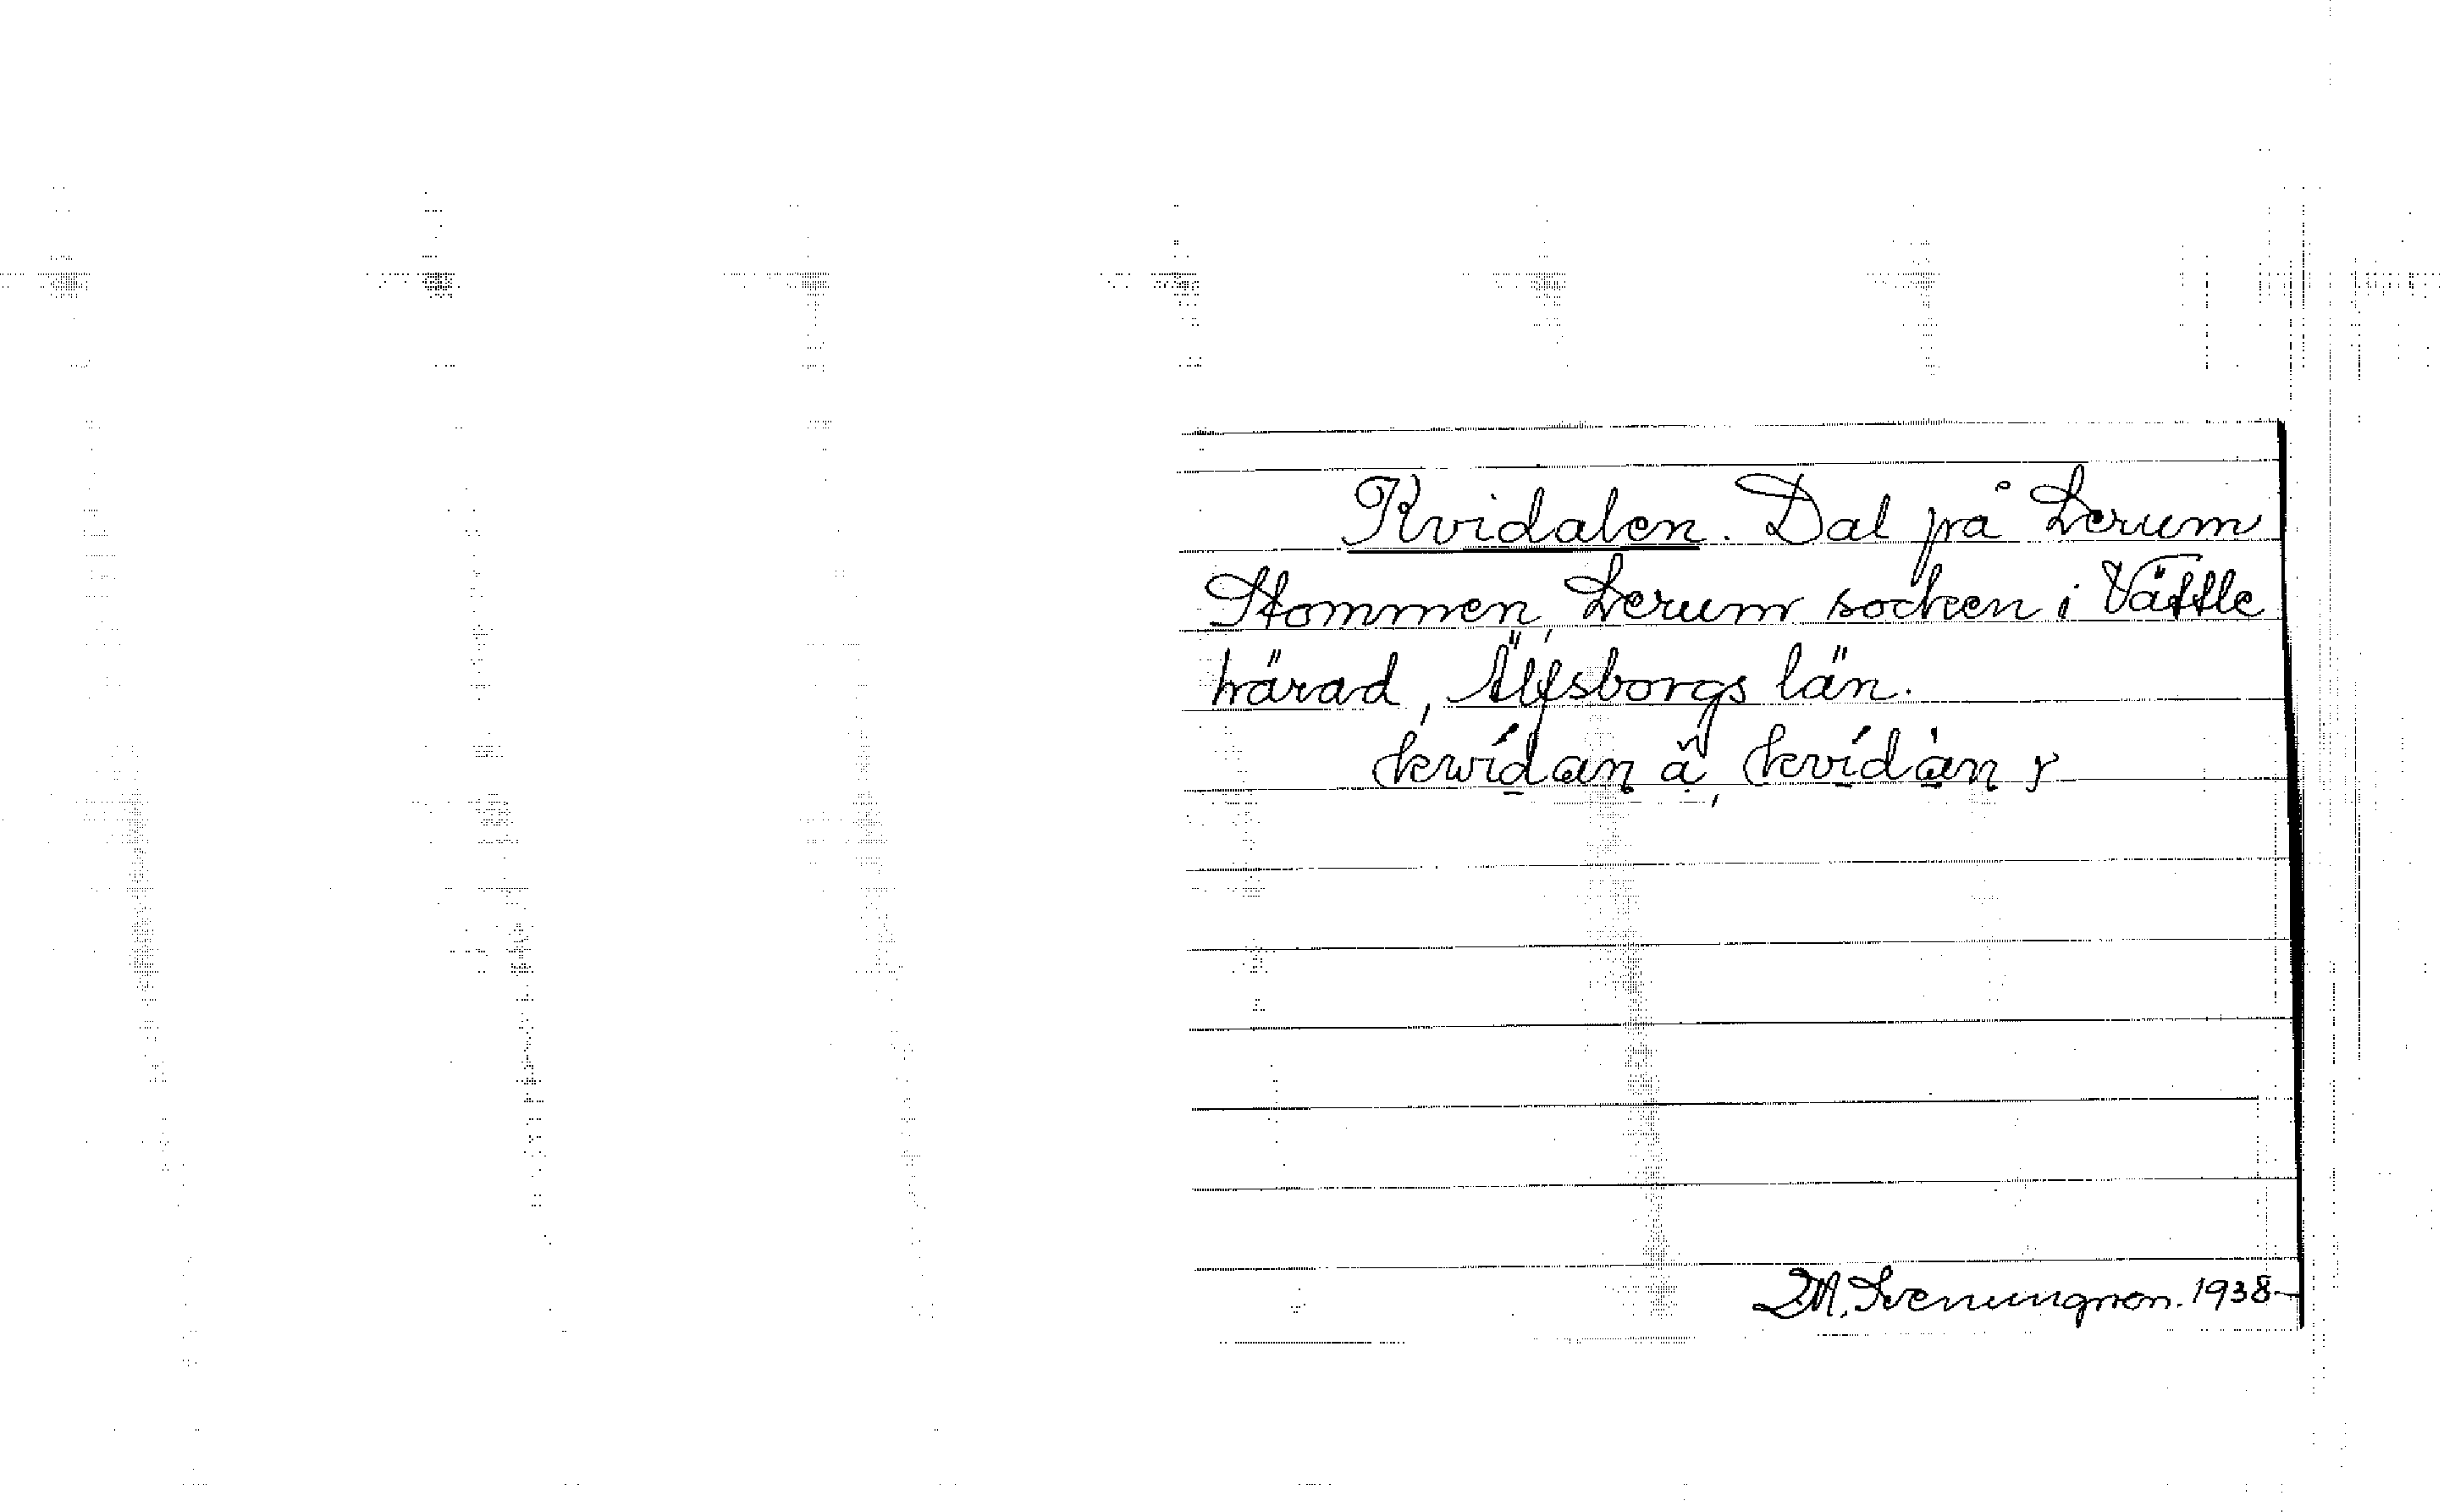 Kvidalen. Dal på Lerum
Stommen, Lerum socken i Vättle
härad, Älfsborgs län.
kwídan å, kvídàn r
M. Svenungsson. 1938